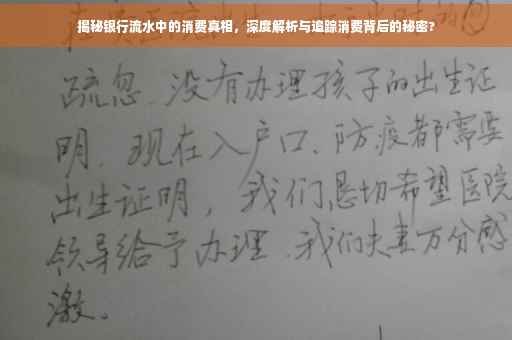 揭秘银行流水中的消费真相，深度解析与追踪消费背后的秘密？
疏忽、没有办理孩子的出生证
明、现在入户口、防疫都需要
出生证明，我们恳切希望医院
领导给予办理、我们夫妻万分感
激。